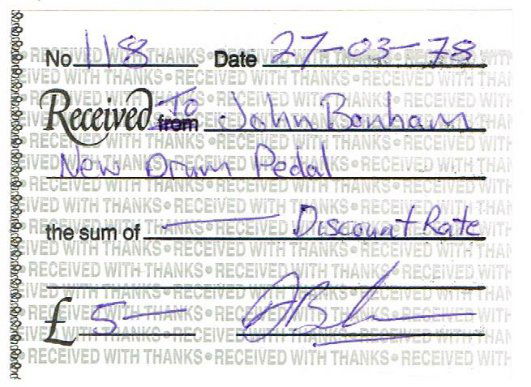 No 118 Date 27-03-78
Received from To John Bonham
New Drum Pedal
the sum of —— Discount Rate
£ 5—
RECEIVED WITH THANKS • RECEIVED WITH THANKS • RECEIVED WITH THANKS